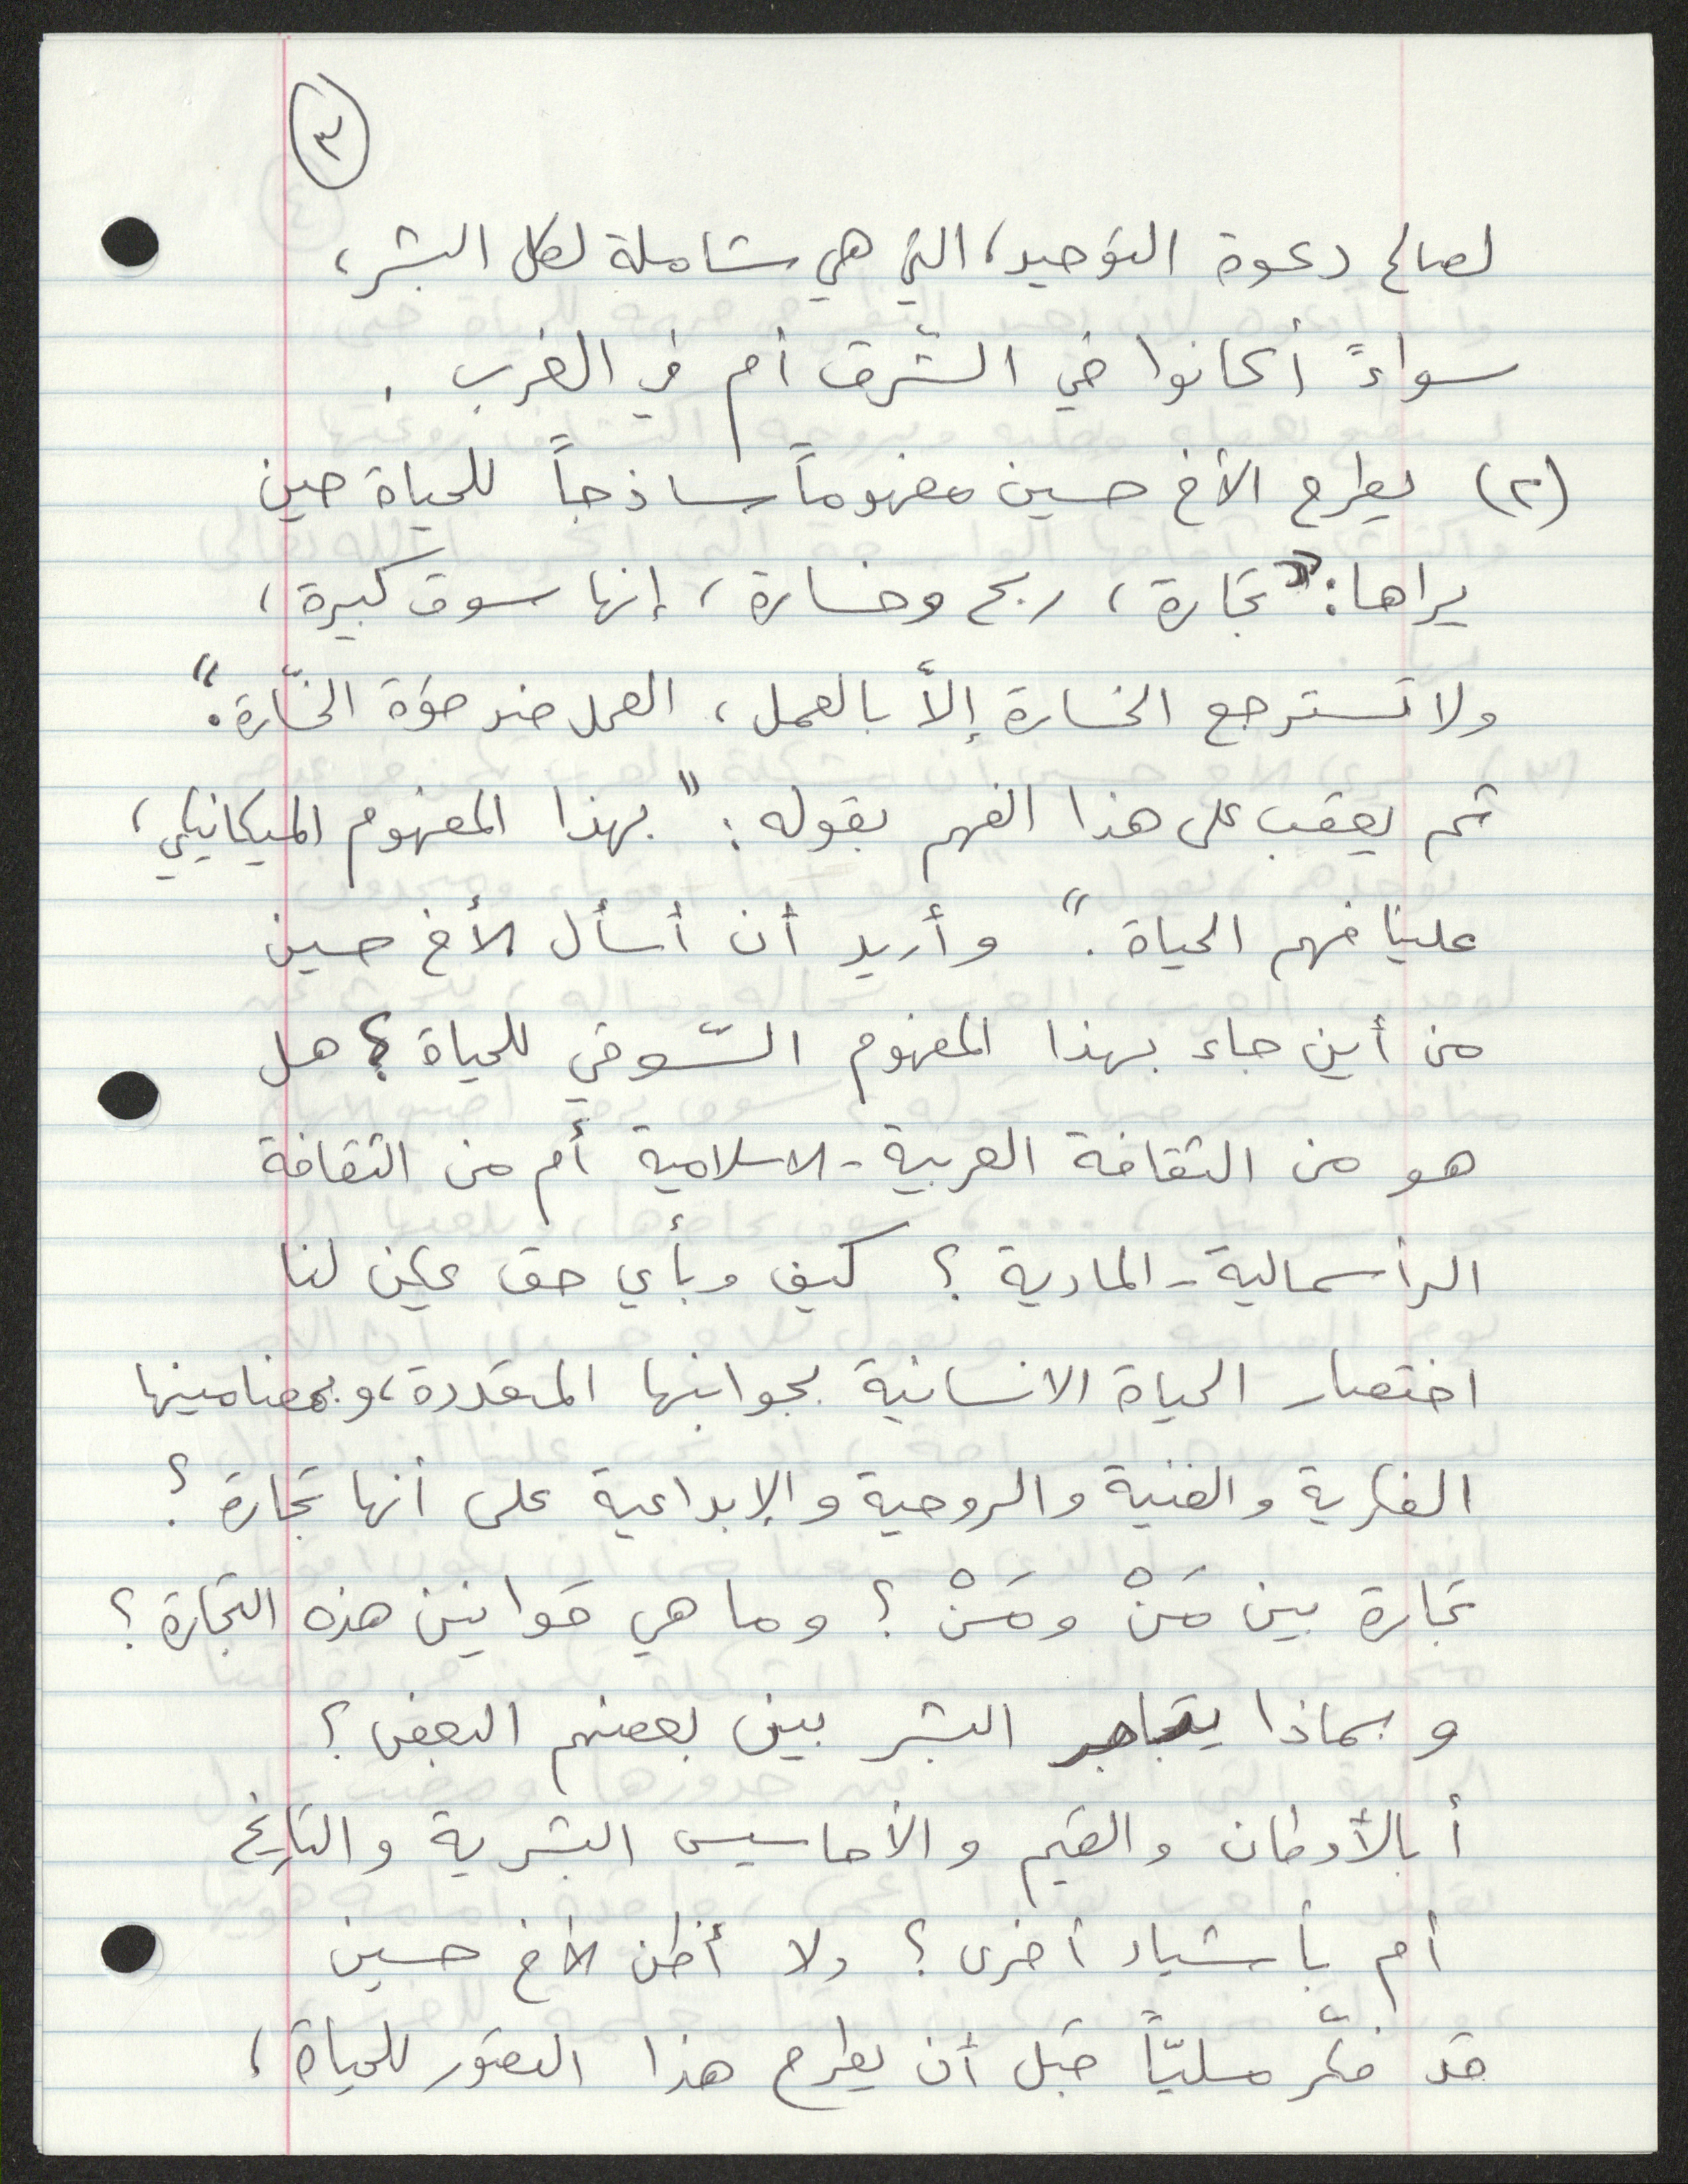 ٣
لصالح دعوة التوحيد، التي هي شاملة لكل البشر،
سواءً أكانوا في الشّرق أم في الغرب.
(٢) يطرح الأخ حسين مفهوماً ساذجاً للحياة حين
يراها: "تجارة، ربح وخسارة، إنها سوق كبيرة،
ولا تسترجع الخسارة إلاّ بالعمل، العمل ضد قوة الخسّارة."
ثم يعقب على هذا الفهم بقوله: "بهذا المفهوم الميكانيكي،
علينا فهم الحياة." وأريد أن أسأل الأخ حسين
من أين جاء بهذا المفهوم السّوقي للحياة؟ هل
هو من الثقافة العربية-الاسلامية أم من الثقافة
الرأسمالية-المادية؟ كيف وبأي حق يمكن لنا
اختصار الحياة الانسانية بجوانبها المتعددة، وبمضامينها
الفكرية والفنية والروحية والإبداعية على أنها تجارة؟
تجارة بين مَنْ ومَنْ؟ وما هي قوانين هذه التجارة؟
وبماذا يتاجر البشر بين بعضهم البعض؟
أبالأوطان والقيم والأحاسيس البشرية والتاريخ
أم بأشياء أخرى؟ ولا أظن الأخ حسين
قد فكّر مليّاً قبل أن يطرح هذا التصوّر للحياة،